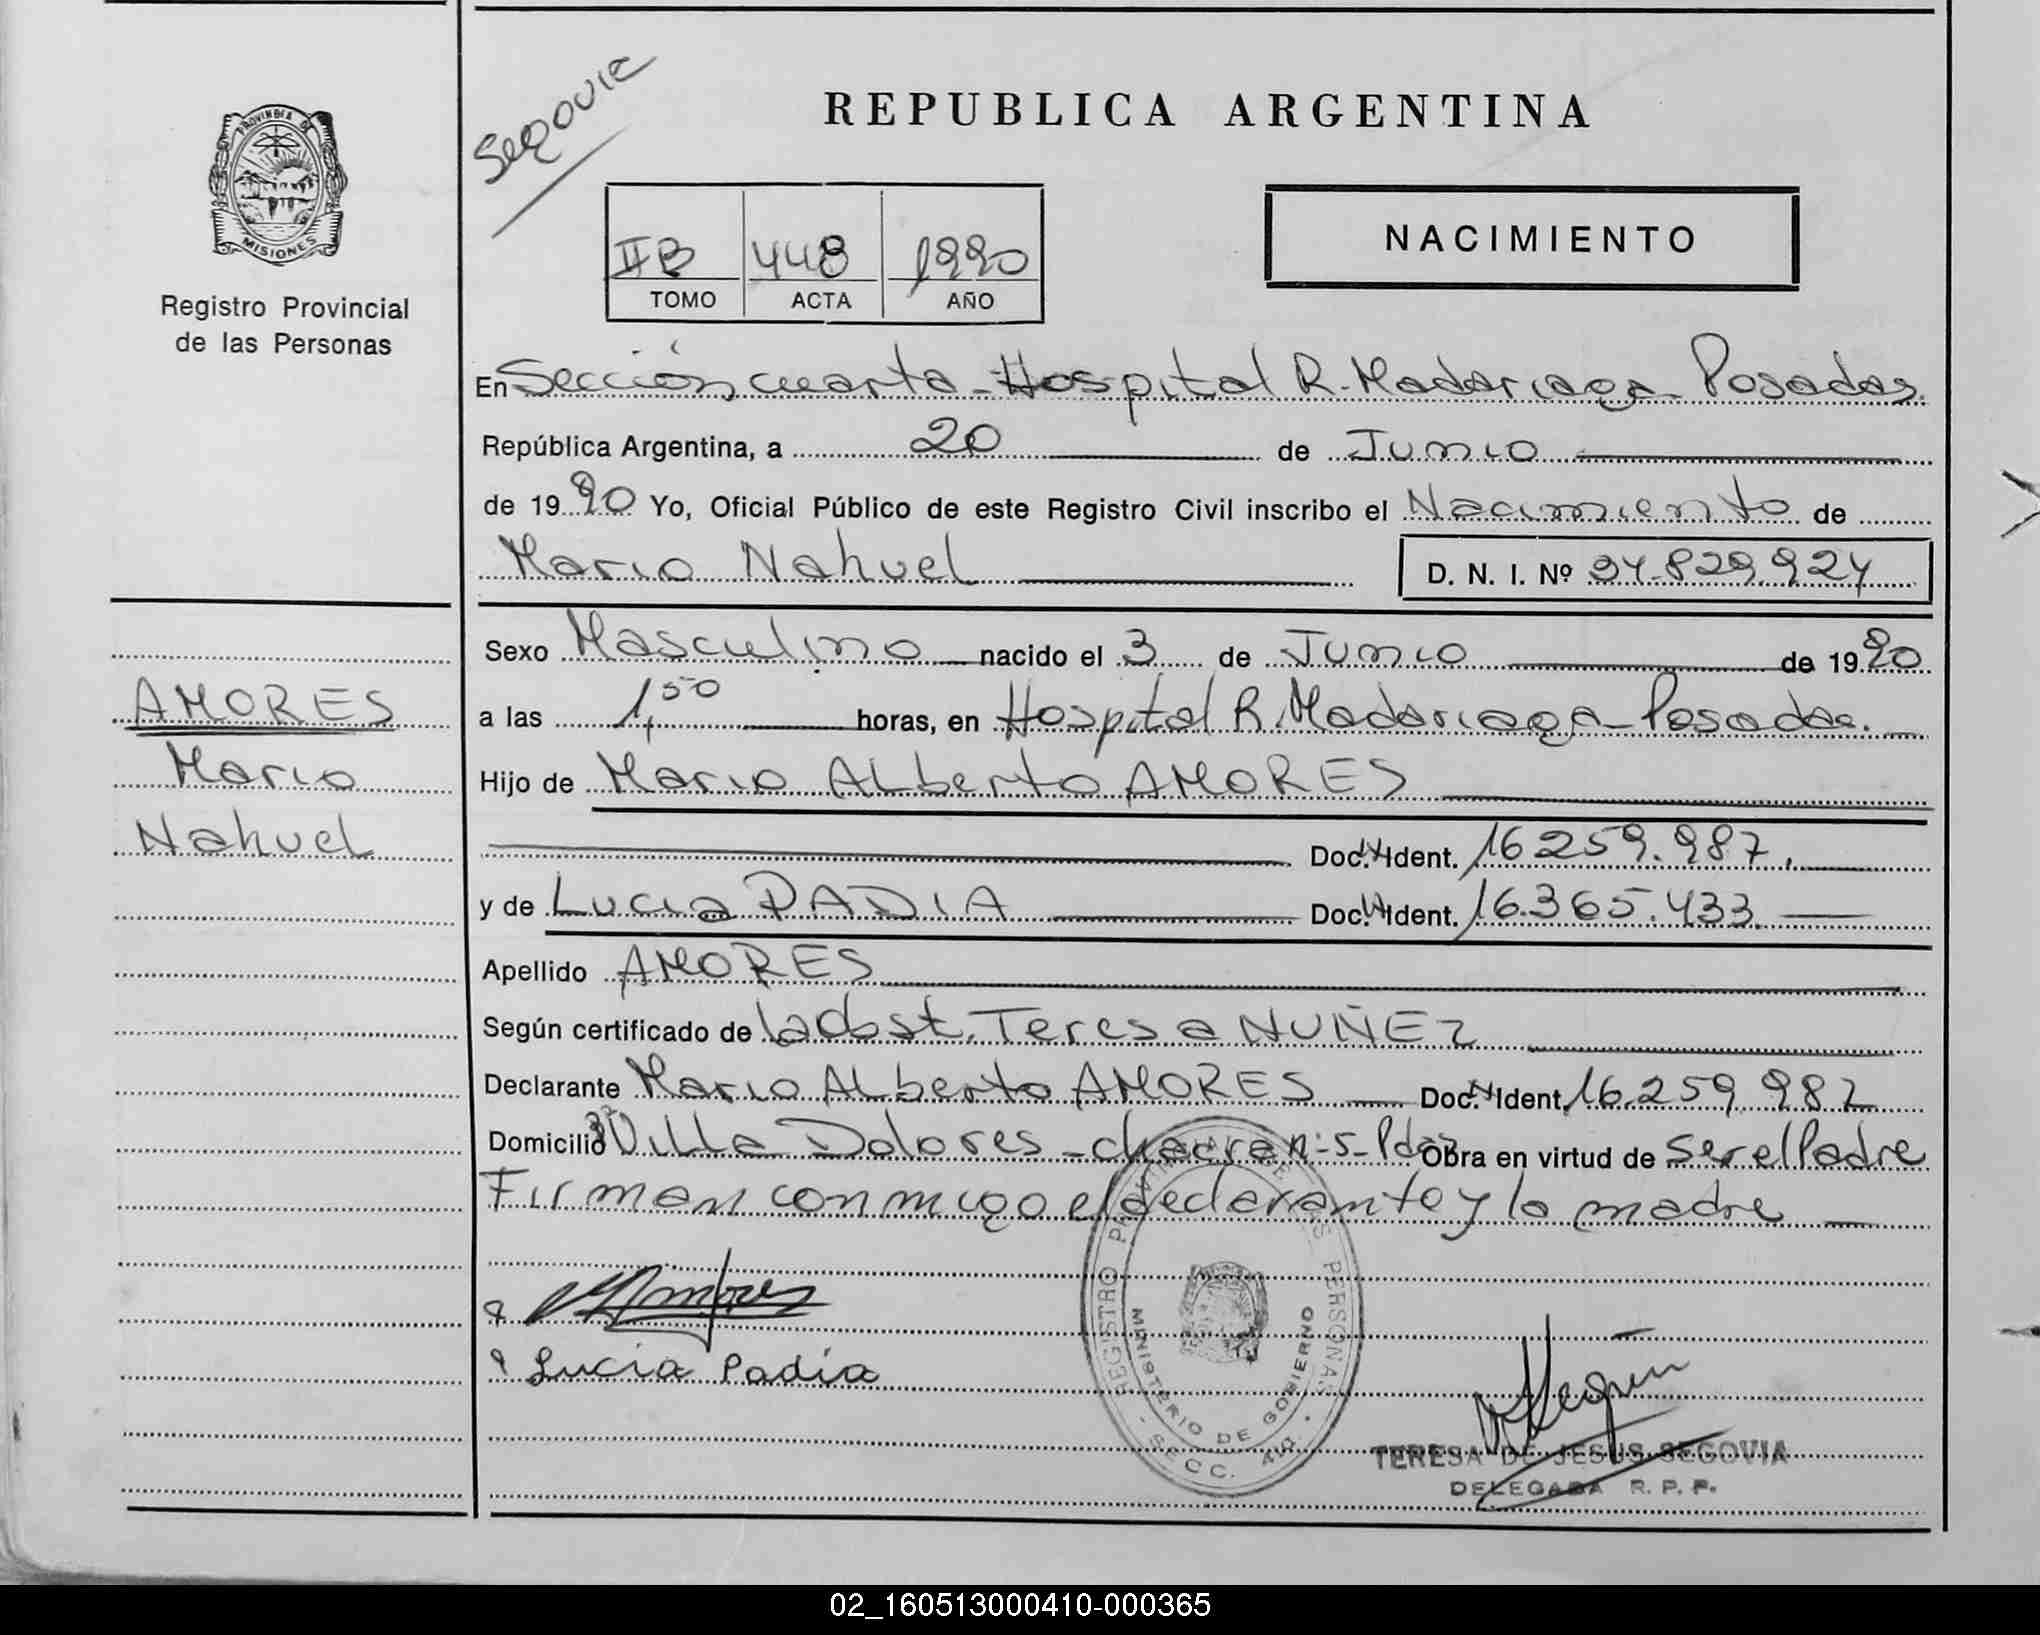 Segovia
REPUBLICA ARGENTINA
PROVINCIA DE
MISIONES
Registro Provincial
de las Personas
IIB 448 1990
TOMO ACTA AÑO
NACIMIENTO
En Sección cuarta - Hospital R. Madariaga - Posadas.
República Argentina, a 20 de Junio
de 1990 Yo, Oficial Público de este Registro Civil inscribo el Nacimiento de
Mario Nahuel D. N. I. Nº 34.829.924
Sexo Masculino nacido el 3 de Junio de 1990
AMORES
Mario
Nahuel
a las 1,50 horas, en Hospital R. Madariaga - Posadas.
Hijo de Mario ALberto AMORES
Doc. Ident. 16.259.987.
y de Lucia PADIA Doc. Ident. 16.365.433.
Apellido AMORES
Según certificado de la obst. Teresa NUÑEZ
Declarante Mario ALberto AMORES Doc. Ident. 16.259.987
Domicilio Villa Dolores - chacra n: 5 - Pdas Obra en virtud de ser el Padre
Firman conmigo el declarante y la madre
Lucia Padia
REGISTRO PROVINCIAL DE LAS PERSONAS
MINISTERIO DE GOBIERNO
SECC. 4ta.
TERESA DE JESUS SEGOVIA
DELEGADA R. P. P.
02_160513000410-000365